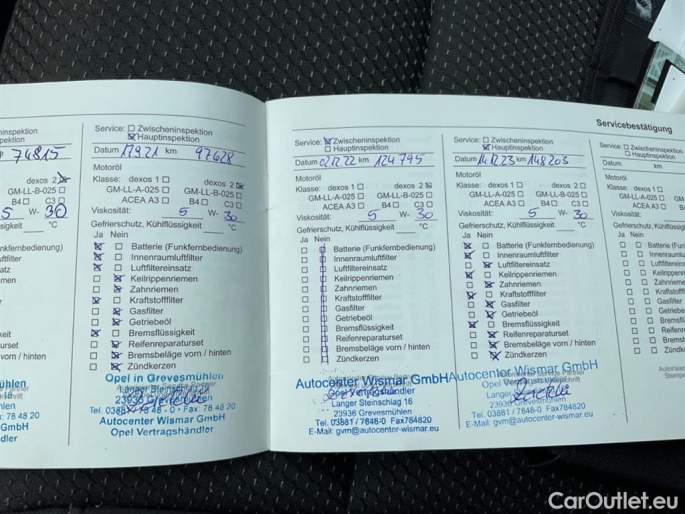 Servicebestätigung
nspektion
ektion
74815
dexos 2
GM-LL-B-025
B4 C3
5 W- 30
sigkeit °C
nbedienung)
ftfilter
satz
men
n
er
keit
rset
n / hinten
Service: Zwischeninspektion
Hauptinspektion
Datum 17.9.21 km 97628
Motoröl
Klasse: dexos 1 dexos 2
GM-LL-A-025 GM-LL-B-025
ACEA A3 B4 C3
Viskosität: 5 W- 30
Gefrierschutz, Kühlflüssigkeit °C
Ja Nein
Batterie (Funkfernbedienung)
Innenraumluftfilter
Luftfiltereinsatz
Keilrippenriemen
Zahnriemen
Kraftstofffilter
Gasfilter
Getriebeöl
Bremsflüssigkeit
Reifenreparaturset
Bremsbeläge vorn / hinten
Zündkerzen
Opel in Grevesmühlen
Langer Steinschlag
Autocenter Wismar GmbH
Opel Vertragshändler
Service: Zwischeninspektion
Hauptinspektion
Datum 02.12.22 km 124795
Motoröl
Klasse: dexos 1 dexos 2
GM-LL-A-025 GM-LL-B-025
ACEA A3 B4 C3
Viskosität: 5 W- 30
Gefrierschutz, Kühlflüssigkeit °C
Ja Nein
Batterie (Funkfernbedienung)
Innenraumluftfilter
Luftfiltereinsatz
Keilrippenriemen
Zahnriemen
Kraftstofffilter
Gasfilter
Getriebeöl
Bremsflüssigkeit
Reifenreparaturset
Bremsbeläge vorn / hinten
Zündkerzen
Autocenter Wismar GmbH
Langer Steinschlag 16
23936 Grevesmühlen
Tel. 03881 / 7848-0 Fax784820
E-Mail: gvm@autocenter-wismar.eu
Service: Zwischeninspektion
Hauptinspektion
Datum 14.12.23 km 148203
Motoröl
Klasse: dexos 1 dexos 2
GM-LL-A-025 GM-LL-B-025
ACEA A3 B4 C3
Viskosität: 5 W- 30
Gefrierschutz, Kühlflüssigkeit °C
Ja Nein
Batterie (Funkfernbedienung)
Innenraumluftfilter
Luftfiltereinsatz
Keilrippenriemen
Zahnriemen
Kraftstofffilter
Gasfilter
Getriebeöl
Bremsflüssigkeit
Reifenreparaturset
Bremsbeläge vorn / hinten
Zündkerzen
Autocenter Wismar GmbH
Tel. 03881 / 7848-0 Fax784820
E-Mail: gvm@autocenter-wismar.eu
Service: Zwischeninspek
Hauptinspektion
Datum km
Motoröl
Klasse: dexos 1
GM-LL-A-025
ACEA A3
Viskosität:
Gefrierschutz, Kühlflüs
Ja Nein
Batterie (Funkfe
Innenraumluft
Luftfiltereinsat
Keilrippenriem
Zahnriemen
Kraftstofffilte
Gasfilter
Getriebeöl
Bremsflüssi
Reifenrepar
Bremsbeläg
Zündkerze
CarOutlet.eu